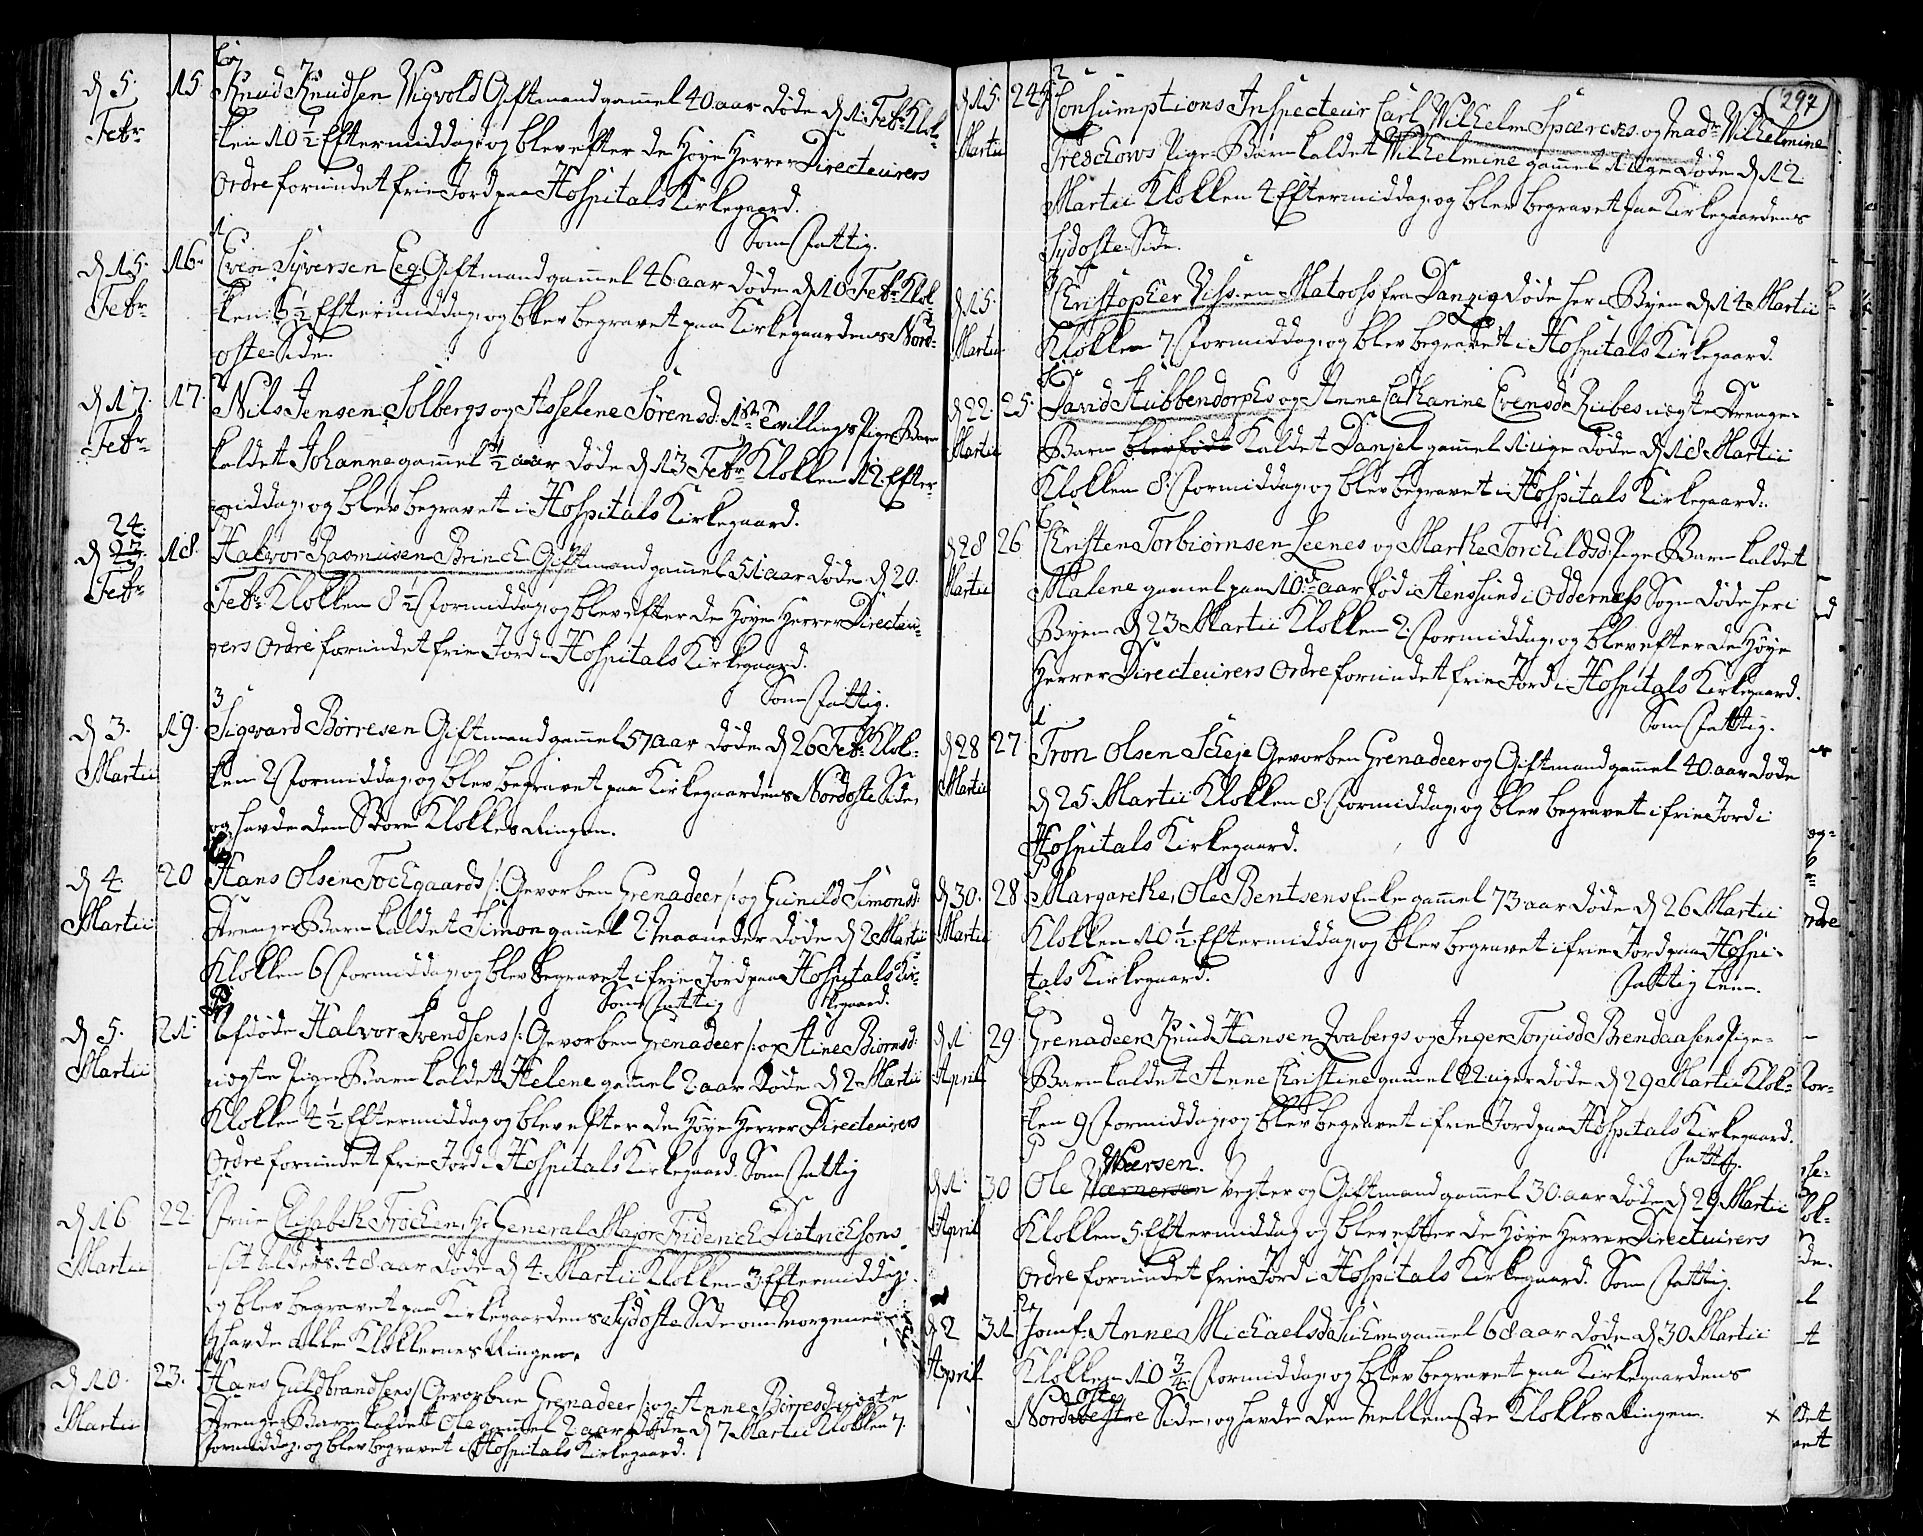 d 5. Febr 15 Knud Knudsen Wigvold Giftmand gammel 40 aar døde d 1. Febr Klok-
ken 10 ½ Eftermiddag, og blev efter de Høye Herrer Directeurers
Ordre forundet frie Jord paa Hospitals Kirkegaard.
Som fattig.
d 15. Febr 16. Even Syversen Eeg Giftmand gammel 46 aar døde d 10 Febr Klok-
ken 5 ½ Eftermiddag, og blev begravet paa Kirkegaardens Nord-
oste Side.
d 17. Febr 17. Nils Jensen Solbergs og Asselene Sørensd. Tvillings Pige Barn
kaldet Johanne gammel ½ aar døde d 13 Febr Klokken 12 Efter-
middag, og blev begravet i Hospitals Kirkegaard.
d 24. Febr 18. Halvor Rasmusen Brinch Giftmand gammel 51 aar døde d 20.
Febr Klokken 8 ½ formiddag, og blev efter de Høye Herrer Directeu-
rers Ordre forundet frie Jord i Hospitals Kirkegaard.
Som fattig.
3
d 3. Martii 19. Sigvard Børresen Giftmand gammel 57 aar døde d 26 Febr Klok-
ken 2 formiddag, og blev begravet paa Kirkegaardens Nordoste Side,
og havde den Store Klokkes Ringen.
d 4. Martii 20 Hans Olsen Fochgaards /: Gevorben Grenadeer :/ og Gunild Simonsd.
Drenge Barn kaldet Simon gammel 2 maaneder døde d 2 Martii
Klokken 6 formiddag, og blev begravet i frie Jord paa Hospitals Kir-
Som fattig kegaard.
d 5. Martii 21. afdøde Halvor Svendsens /: Gevorben Grenadeer :/ og Stine Biørnsd.
uægte Pige Barn kaldet Helene gammel 2 aar døde d 2 Martii
Klokken 4 ½ Eftermiddag og blev efter de Høye Herrer Directeurers
Ordre forundet frie Jord i Hospitals Kirkegaard. Som fattig
d 16 Martii 22. Frue Elisabeth Frøchen, Hr General Major Friderich Dietrichsons
i sit Alders 48 aar døde d 4. Martii Klokken 3 Eftermiddag,
og blev begravet paa Kirkegaardens Sydoste Side om Morgenen
og havde alle Klokkernes Ringen.
d 10. Martii 23. Hans Guldbrandsens /: Gevorbne Grenadeer :/ og Anne Børresd. uægte
Drenge Barn kaldet Ole gammel 2 aar døde d 7 Martii Klokken 7.
formiddag, og blev begravet i Hospitals Kirkegaard.
297
d 15. Martii 24 Consumptions Inspecteur Carl Wilhelm og Madme Wilhelmine
Treschows Pige Barn kaldet Wilhelmine gammel 1 uge døde d 12
Martii Klokken 4 Eftermiddag, og blev begravet paa Kirkegaardens
Sydoste Side.
d 15. Martii Christopher en Matross fra Danzig døde her i Byen d 14 Martii
Klokken 7 formiddag, og blev begravet i Hospitals Kirkegaard.
d 22. Martii 25. David Stubbendorphs og Anne Cathanne Evensd. Rubes uægte Drenge-
Barn blev født kaldet Danjel gammel 1 uge døde d 18 Martii
Klokken 8 formiddag, og blev begravet i Hospitals Kirkegaard.
d 28 Martii 26 Christen Torbiørnsen Leenes og Marthe Torchildsd. Pige Barn kaldet
Malene gammel paa 10de aar fød i Stensund i Odderness Sogn døde her i
Byen d 23 Martii Klokken 2 formiddag, og blev efter de Høye
Herrer Directeurers Ordre forundet frie Jord i Hospitals Kirkegaard.
Som fattig.
d 28 Martii 27 Tron Olsen Scheje Gevorben Grenadeer og Giftmand gammel 40 aar døde
d 25 Martii Klokken 8 formiddag, og blev begravet i frie Jord i
Hospitals Kirkegaard.
d 30. Martii 28 Margarethe, Ole Bentsens Enke gammel 73 aar døde d 26 Martii
Klokken 10 ½ Eftermiddag, og blev begravet i frie Jord paa Hospi-
tals Kirkegaard.
Fattig Lem.
d 1 April 29. Grenadeer Knud Hansen Foabergs og Inger Torjusd. Brendaasens Pige-
Barn kaldet Anne Christine gammel 12 uger døde d 29 Martii Klok-
ken 9 formiddag, og blev begravet i frie Jord paa Hospitals Kirkegaard.
Fattig.
Wærsen.
d 1. April 30 Ole Wærnersen Vegter og Giftmand gammel 30 aar døde d 29 Martii
Klokken 5 Eftermiddag og blev efter de Høye Herrer Directeurers
Ordre forundet frie Jord i Hospitals Kirkegaard. Som fattig.
d 2 April 31 Jomf. Anne Michaelsd. gammel 68 aar døde d 30 Martii
Klokken 10 ¾ formiddag, og blev begravet paa Kirkegaardens
oste
Nordvestre Side, og havde den Mellemste Klokkes Ringen. x